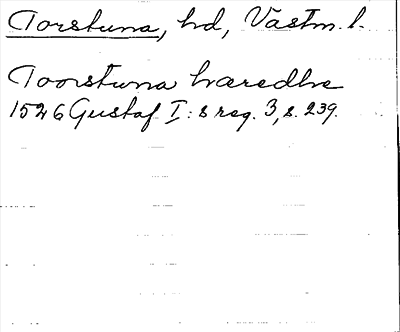 Torstuna, hd, Västm. l.
Toorstuna hæredhe
1526 Gustaf I:s reg. 3, s. 239.